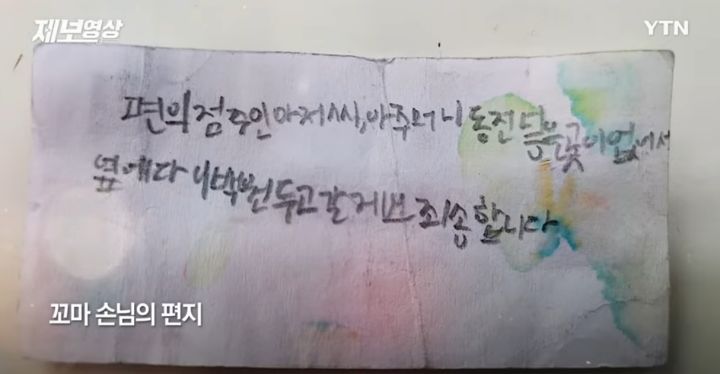 제보영상
YTN
편의점 주인아저씨,아주머니 동전 넣을 곳이 없어서
옆에다 1백번 두고 갈게요 죄송합니다
꼬마 손님의 편지